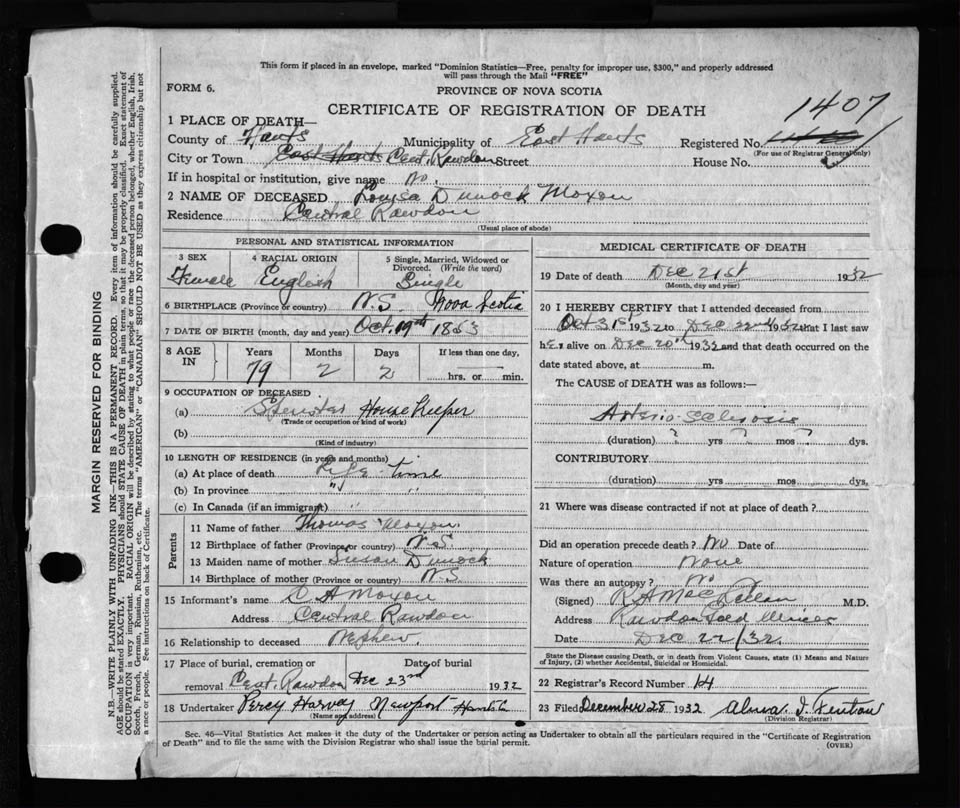 This form if placed in an envelope, marked "Dominion Statistics—Free, penalty for improper use, $300," and properly addressed
will pass through the Mail "FREE"
FORM 6.
PROVINCE OF NOVA SCOTIA
CERTIFICATE OF REGISTRATION OF DEATH
1407
1 PLACE OF DEATH—
County of Hants Municipality of East Hants Registered No.
(For use of Registrar General only)
City or Town East Hants Cent. Rawdon Street House No.
If in hospital or institution, give name No.
2 NAME OF DECEASED Louisa Dimock Moxon
Residence Central Rawdon
(Usual place of abode)
PERSONAL AND STATISTICAL INFORMATION
3 SEX Female
4 RACIAL ORIGIN English
5 Single, Married, Widowed or Divorced. (Write the word) Single
6 BIRTHPLACE (Province or country) N.S. Nova Scotia
7 DATE OF BIRTH (month, day and year) Oct. 19th 1853
8 AGE IN Years Months Days If less than one day,
79 2 2 hrs. or min.
9 OCCUPATION OF DECEASED
(a) Spinster House Keeper
(Trade or occupation or kind of work)
(b)
(Kind of industry)
10 LENGTH OF RESIDENCE (in years and months)
(a) At place of death Life-time
(b) In province " "
(c) In Canada (if an immigrant)
Parents
11 Name of father Thomas Moxon
12 Birthplace of father (Province or country) N.S.
13 Maiden name of mother Susan Dimock
14 Birthplace of mother (Province or country) N.S.
15 Informant's name A Moxon
Address Central Rawdon
16 Relationship to deceased Nephew
17 Place of burial, cremation or Date of burial
removal Cent. Rawdon Dec 23rd 1932
18 Undertaker Percy Harvey Newport
(Name and address)
MEDICAL CERTIFICATE OF DEATH
19 Date of death Dec 21st 1932
(Month, day and year)
20 I HEREBY CERTIFY that I attended deceased from
Oct 31st 1932 to Dec 22nd 1932 that I last saw
her alive on Dec 20th 1932 and that death occurred on the
date stated above, at m.
The CAUSE of DEATH was as follows:
Arterio-sclerosis
(duration) ? yrs ? mos ? dys.
CONTRIBUTORY
(duration) yrs mos dys.
21 Where was disease contracted if not at place of death?
Did an operation precede death? No Date of
Nature of operation None
Was there an autopsy? No
(Signed) R A MacLellan M.D.
Address Rawdon Gold Mines
Date Dec 22/32.
State the Disease causing Death, or in death from Violent Causes, state (1) Means and Nature
of Injury, (2) whether Accidental, Suicidal or Homicidal.
22 Registrar's Record Number 14
23 Filed December 28 1932 Alma I. Fenton
(Division Registrar)
Sec. 46—Vital Statistics Act makes it the duty of the Undertaker or person acting as Undertaker to obtain all the particulars required in the "Certificate of Registration
of Death" and to file the same with the Division Registrar who shall issue the burial permit.
(OVER)
MARGIN RESERVED FOR BINDING
N.B.—WRITE PLAINLY WITH UNFADING INK—THIS IS A PERMANENT RECORD. Every item of information should be carefully supplied.
AGE should be stated EXACTLY. PHYSICIANS should STATE CAUSE OF DEATH in plain terms, so that it may be properly classified. Exact statement of
OCCUPATION is very important. RACIAL ORIGIN will be described by stating to what people or race the deceased person belonged, whether English, Irish,
Scotch, French, German, Russian, Ruthenian, etc. The terms "AMERICAN" or "CANADIAN" SHOULD NOT BE USED as they express citizenship but not
a race or people. See instructions on back of Certificate.